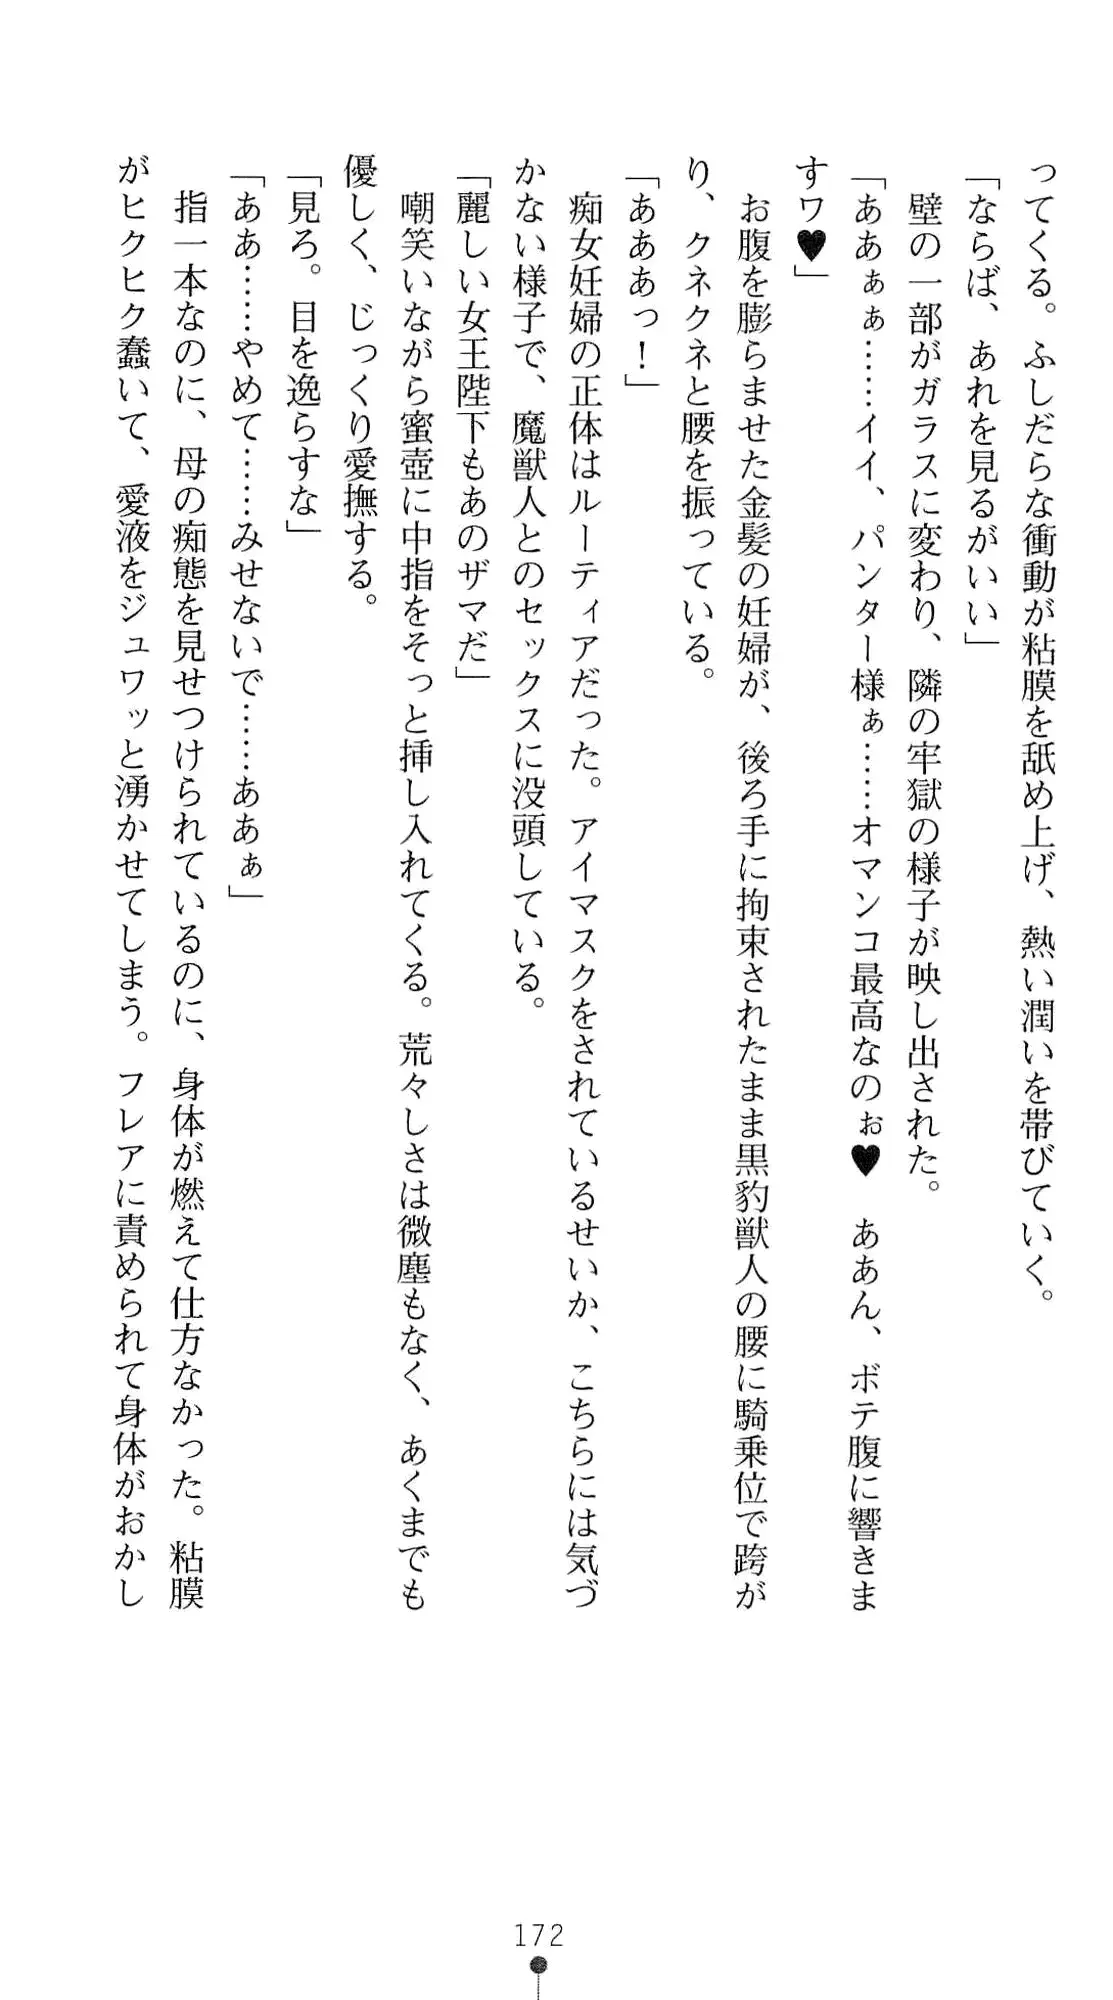 ってくる。ふしだらな衝動が粘膜を舐め上げ、熱い潤いを帯びていく。
「ならば、あれを見るがいい」
　壁の一部がガラスに変わり、隣の牢獄の様子が映し出された。
「ああぁぁ……イイ、パンター様ぁ……オマンコ最高なのぉ♥　ああん、ボテ腹に響きま
すワ♥」
　お腹を膨らませた金髪の妊婦が、後ろ手に拘束されたまま黒豹獣人の腰に騎乗位で跨が
り、クネクネと腰を振っている。
「あああっ！」
　痴女妊婦の正体はルーティアだった。アイマスクをされているせいか、こちらには気づ
かない様子で、魔獣人とのセックスに没頭している。
「麗しい女王陛下もあのザマだ」
　嘲笑いながら蜜壺に中指をそっと挿し入れてくる。荒々しさは微塵もなく、あくまでも
優しく、じっくり愛撫する。
「見ろ。目を逸らすな」
「ああ……やめて……みせないで……ああぁ」
　指一本なのに、母の痴態を見せつけられているのに、身体が燃えて仕方なかった。粘膜
がヒクヒク蠢いて、愛液をジュワッと湧かせてしまう。フレアに責められて身体がおかし
172